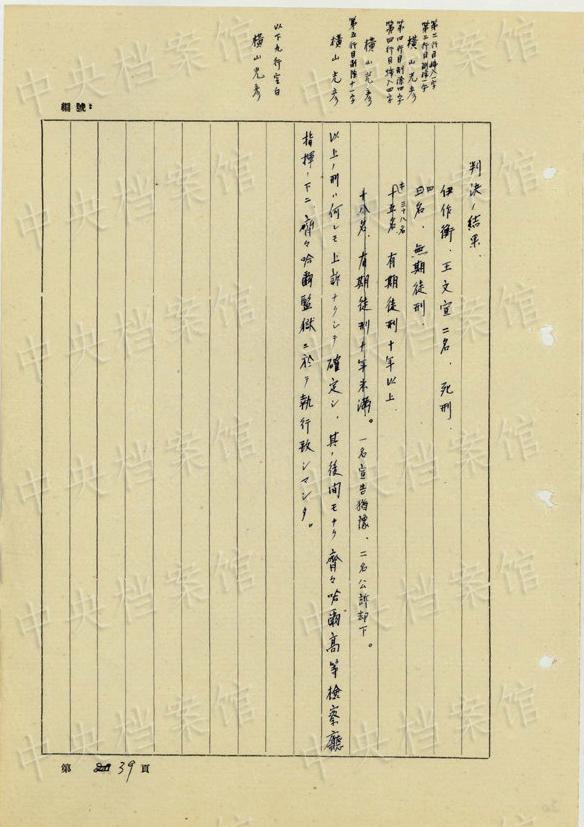 第二行目挿入一字
第三行目削除一字
横山光彦
第四行目削除四字
第四行目挿入四字
横山光彦
第五行目削除十一字
横山光彦
以下九行空白
横山光彦
編號：
判決ノ結果、
伊作衡、王文宣二名、死刑、
四名、無期徒刑、
三十八名
十五名、有期徒刑十年以上
十八名、有期徒刑十年未満。一名宣告猶豫、二名公訴却下。
以上ノ刑ハ何レモ上訴ナクシテ確定シ、其ノ後間モナク齊々哈爾高等検察廳
指揮ノ下ニ、齊々哈爾監獄ニ於テ執行致シマシタ。
第 39 頁
中央档案馆